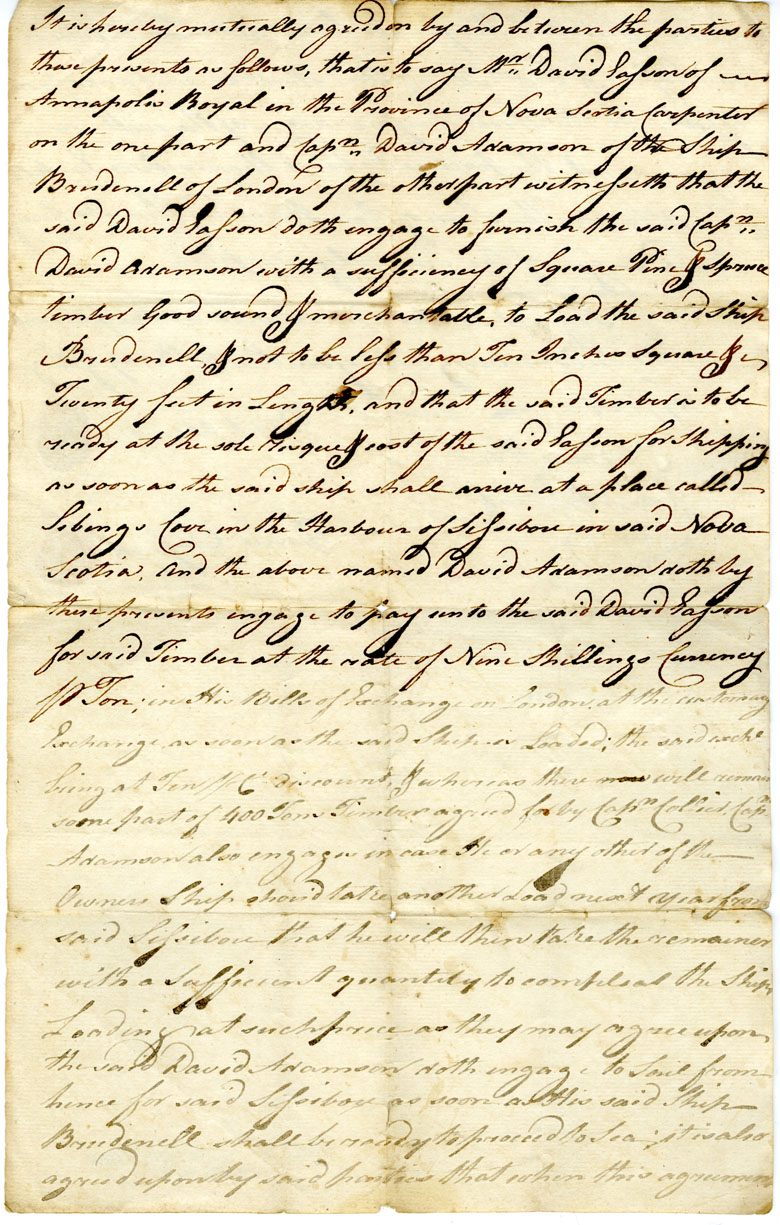 It is hereby mutually agreed on by and between the parties to
these presents as follows, that is to say Mr. David Easson of
Annapolis Royal in the Province of Nova Scotia Carpenter
on the one part and Capn. David Adamson of the Ship
Brudenell of London of the other part witnesseth that the
said David Easson doth engage to furnish the said Capn.
David Adamson with a sufficiency of Square Pine & Spruce
timber Good sound & merchantable, to Load the said Ship
Brudenell, & not to be less than Ten Inches Square &
Twenty feet in Length, and that the said Timber is to be
ready at the sole risque & cost of the said Easson for Shipping
as soon as the said ship shall arrive at a place called
Sibings Cove in the Harbour of Sissibou in said Nova
Scotia, and the above named David Adamson doth by
these presents engage to pay unto the said David Easson
for said Timber at the rate of Nine Shillings Currency
pr Ton; in His Bills of Exchange on London, at the customary
Exchange, as soon as the said Ship is Loaded; the said exche
being at Ten pr Ct discount, & whereas there will remain
some part of 400 Tons Timber agreed for by Capn Collier, Capn
Adamson also engages in case He or any other of the
Owners Ship should take another Load next year from
said Sissibou that he will then take the remainer
with a Sufficient quantity to compleat the Ships
Loading at such price as they may agree upon
the said David Adamson doth engage to Sail from
hence for said Sissibou as soon as His said Ship
Brudenell shall be ready to proceed to Sea; it is also
agreed upon by said parties that when this agreement